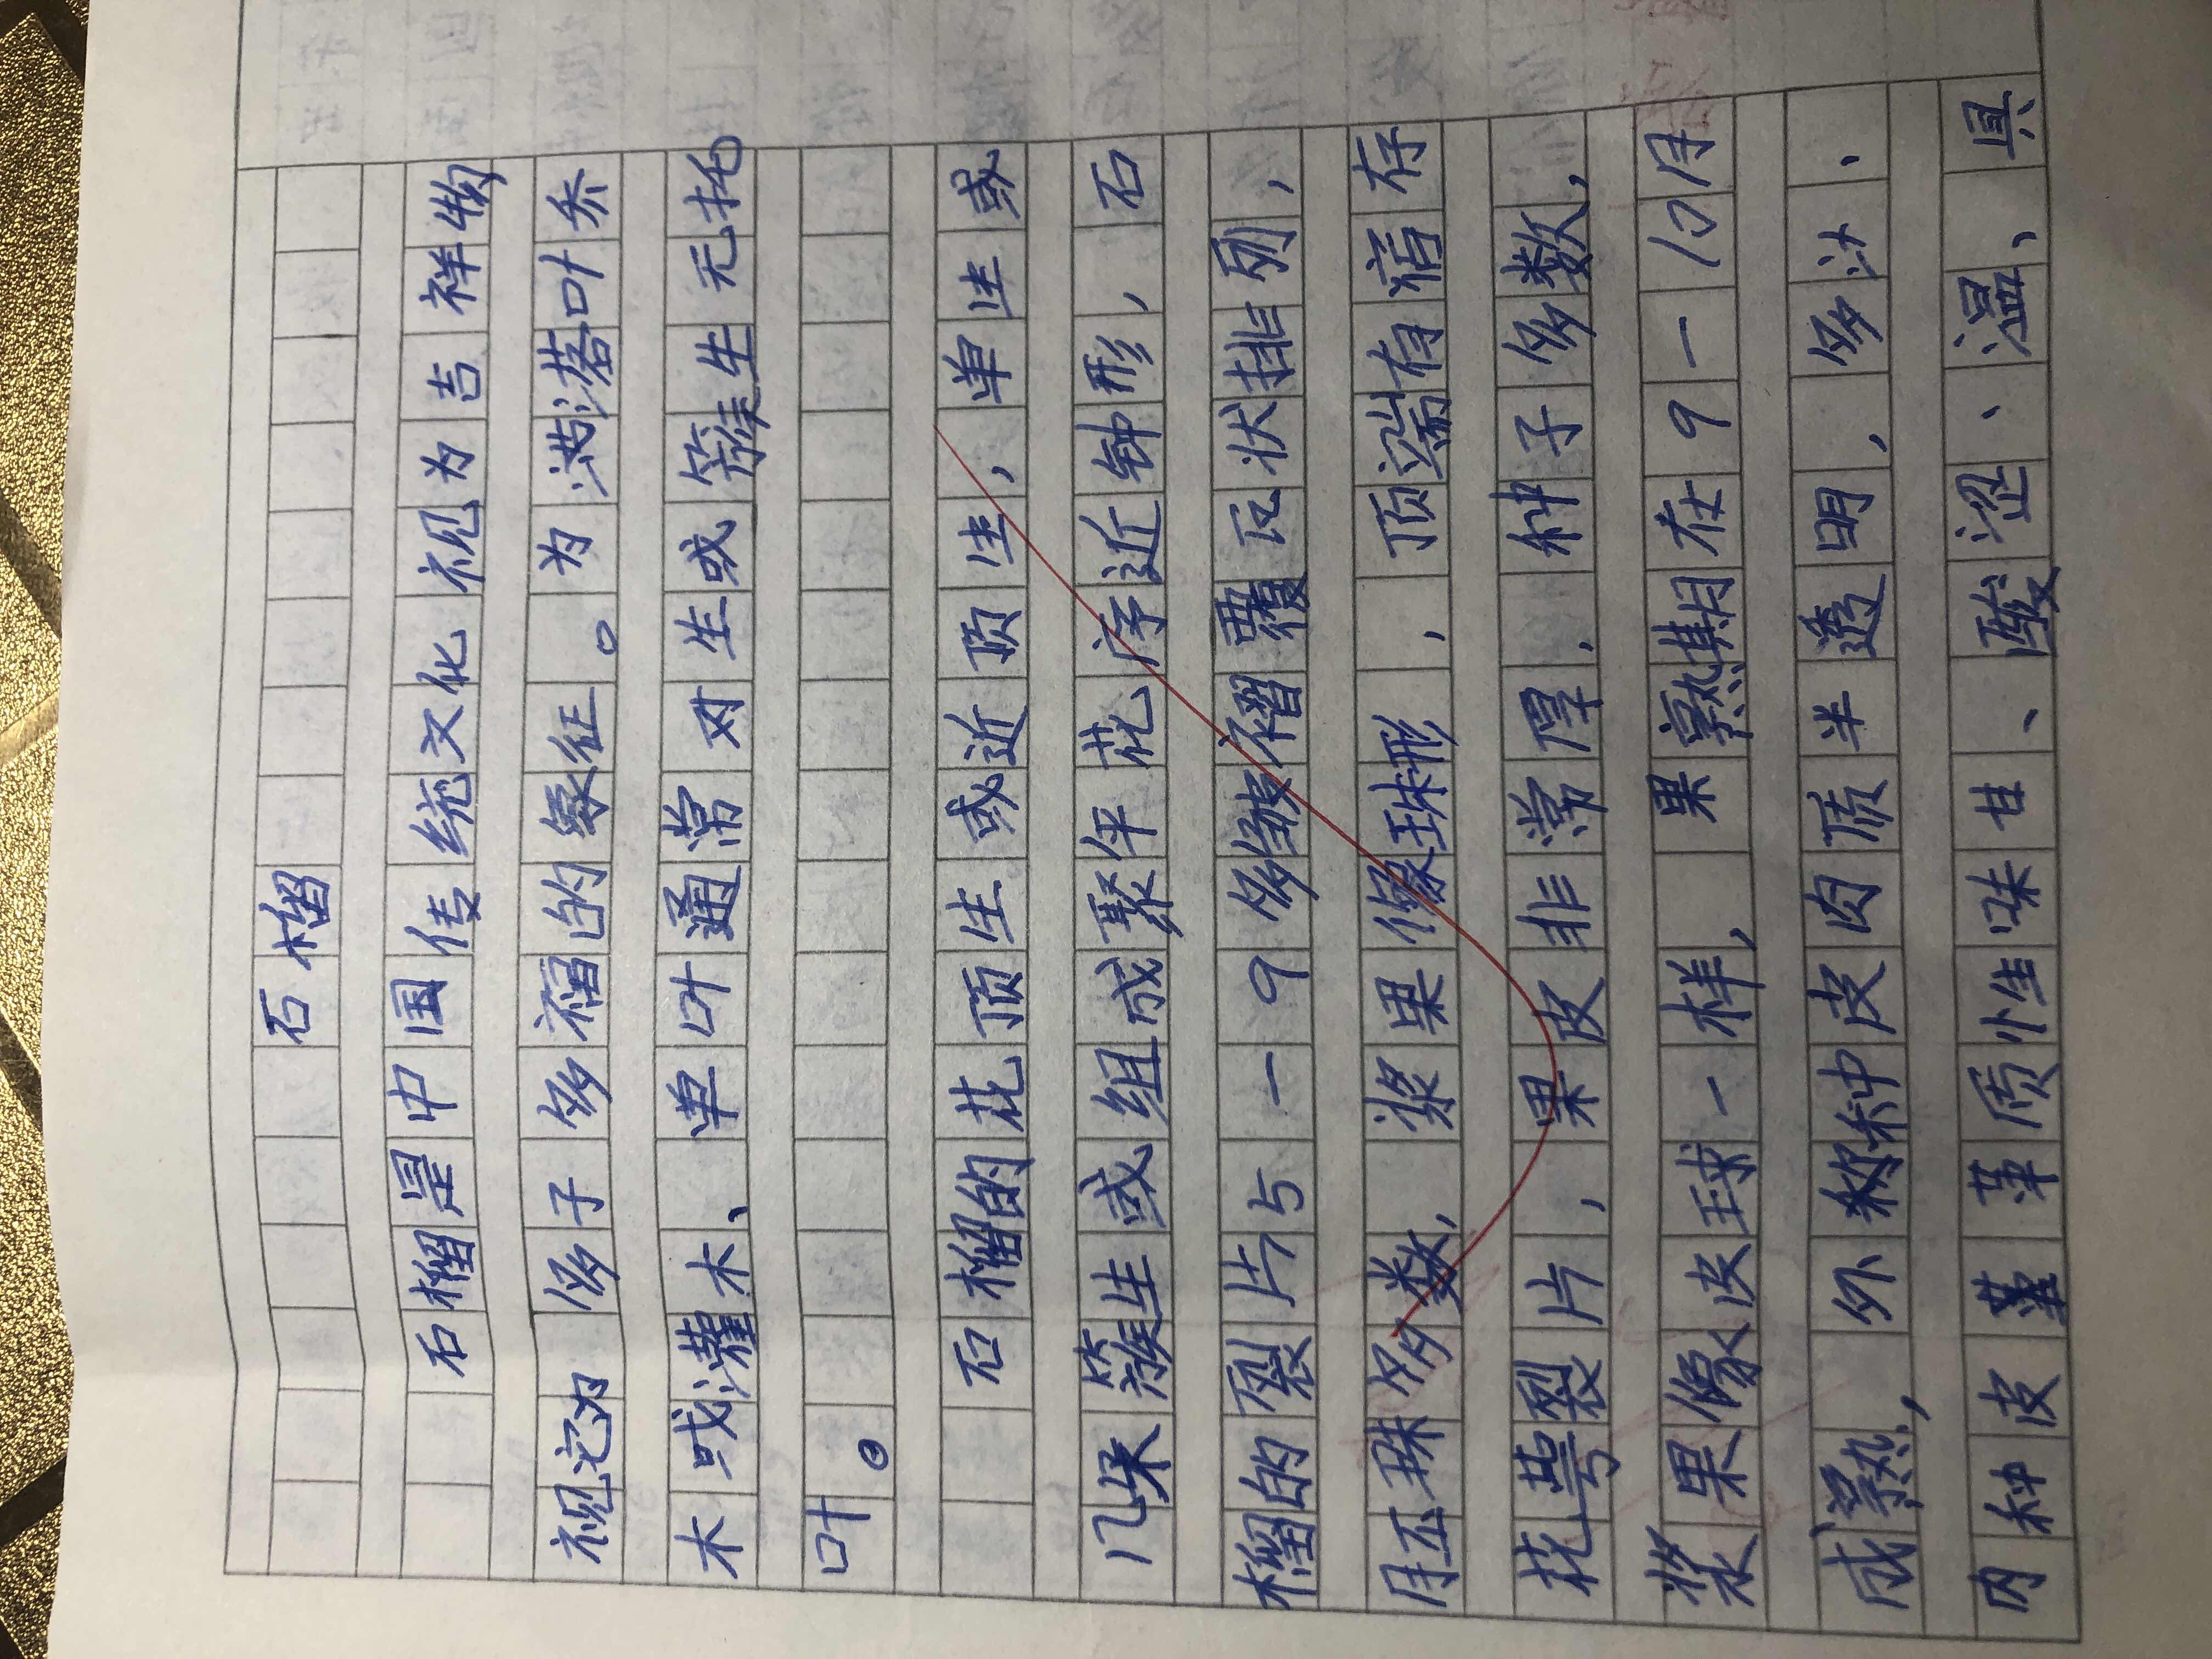 石榴
石榴是中国传统文化视为吉祥物
视它为多子多福的象征。为满落叶乔
木或灌木、单叶通常对生或簇生无托
叶。
石榴的花顶生或近顶生,单生或
几朵簇生或组成聚伞花序近钟形,石
榴的裂片5一9多皱褶覆瓦状排列,
胚珠多数,浆果像球形,顶端有宿存
花萼裂片,果皮非常厚,种子多数,
浆果像皮球一样,果熟期在9一10月
成熟,外称种皮肉质半透明,多汁、
内种皮革质性味甘、酸涩、温、具